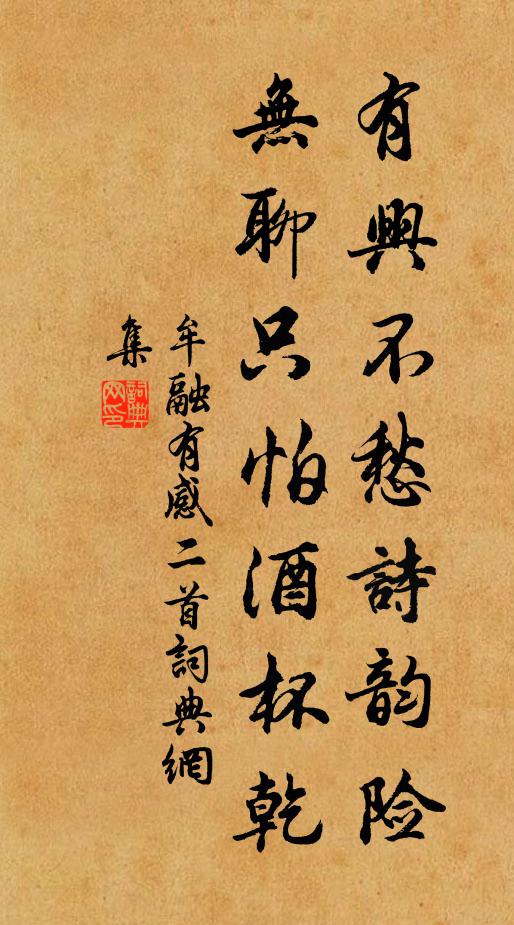 有興不愁詩韵险
無聊只怕酒杯乾
牟融有感二首詞典網
集
詞典網印